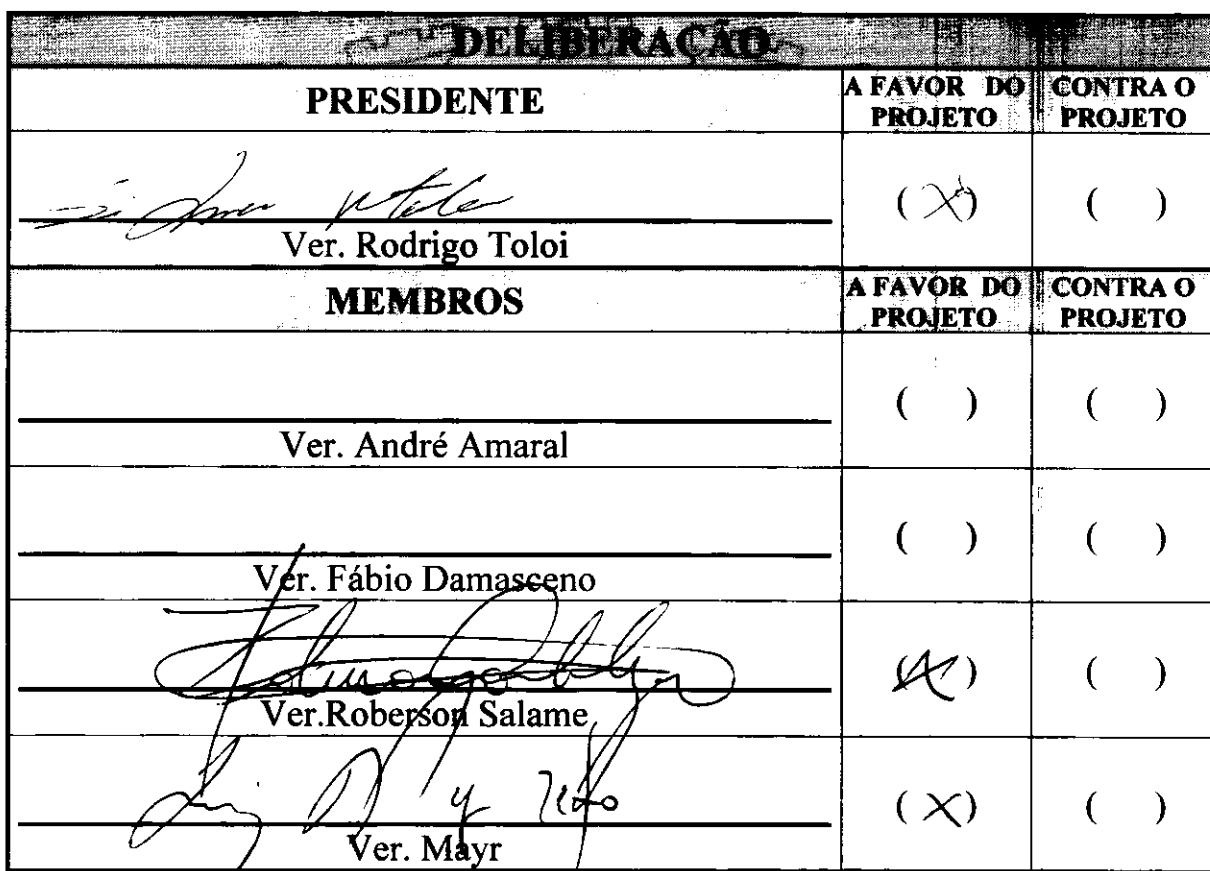 DELIBERAÇÃO
PRESIDENTE
A FAVOR DO PROJETO
CONTRA O PROJETO
(X)
( )
Ver. Rodrigo Toloi
MEMBROS
A FAVOR DO PROJETO
CONTRA O PROJETO
( )
( )
Ver. André Amaral
( )
( )
Ver. Fábio Damasceno
(X)
( )
Ver.Roberson Salame
(X)
( )
Ver. Mayr